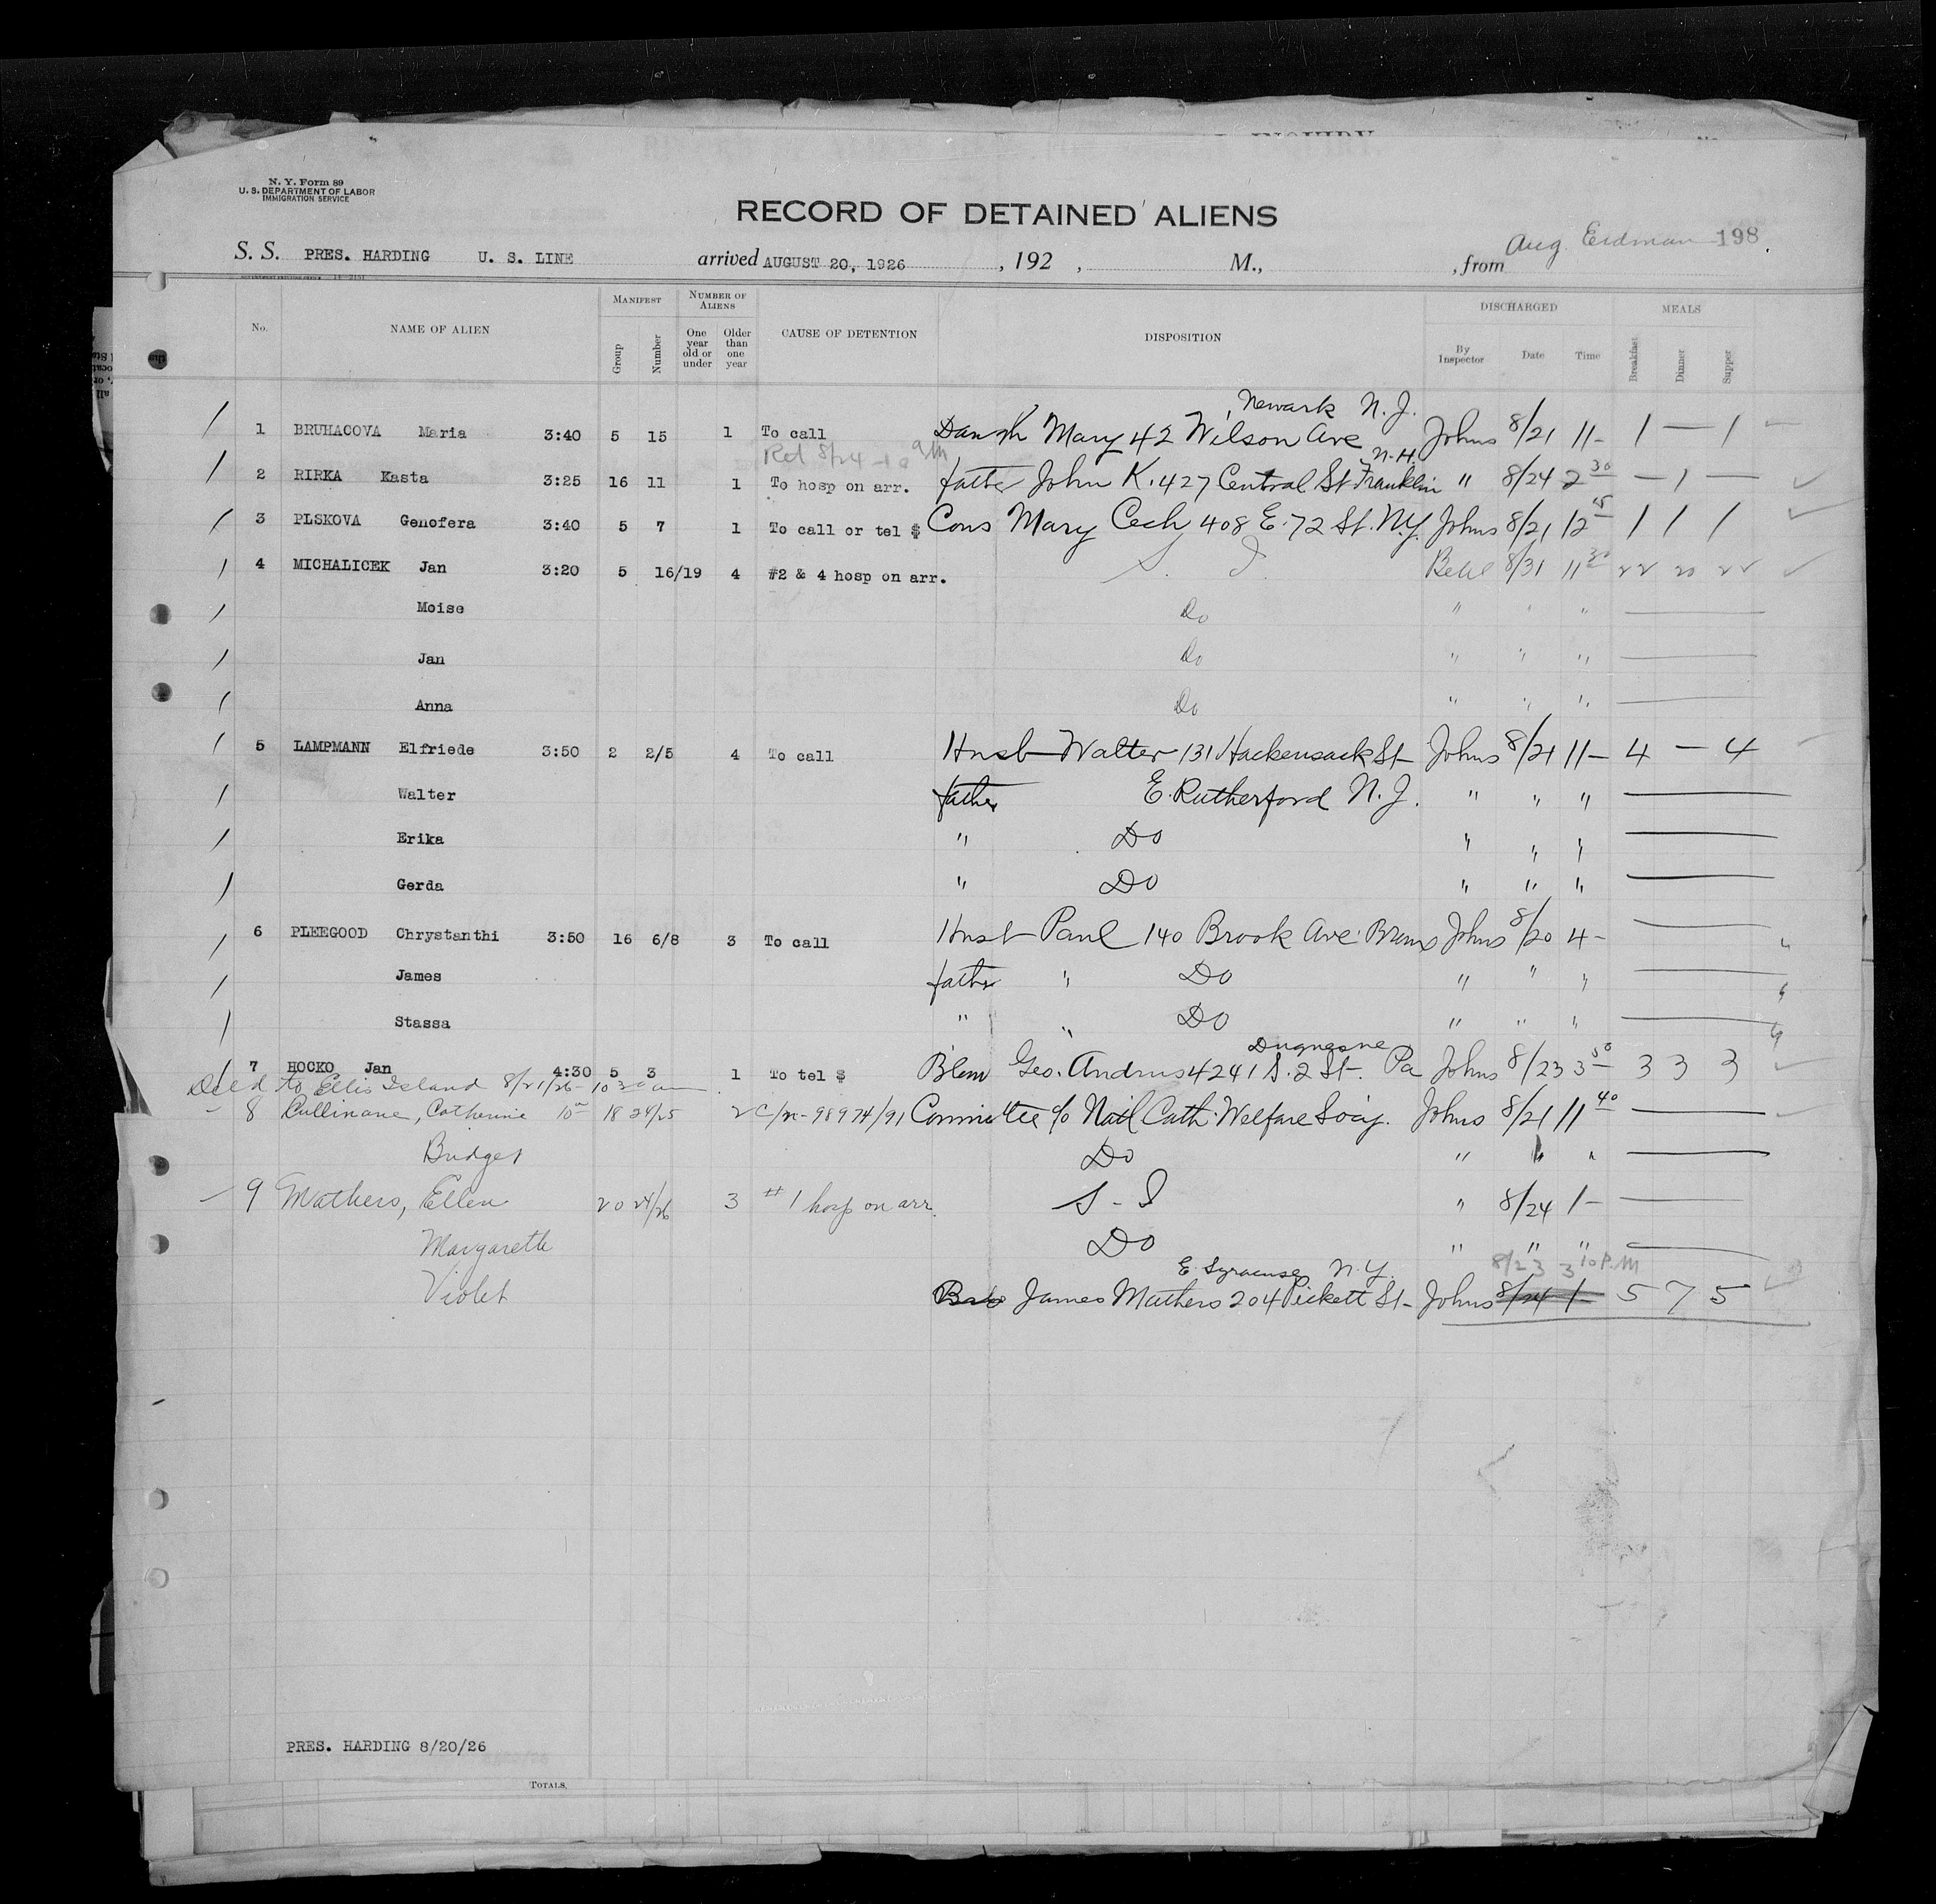 N. Y. Form 89
U. S. DEPARTMENT OF LABOR
IMMIGRATION SERVICE
RECORD OF DETAINED ALIENS
198
S. S. PRES. HARDING U. S. LINE arrived AUGUST 20, 1926, 192 , M., , from Aug. Erdman
No. NAME OF ALIEN MANIFEST Group Number NUMBER OF ALIENS One year old or under Older than one year CAUSE OF DETENTION DISPOSITION DISCHARGED By Inspector Date Time MEALS Breakfast Dinner Supper
Newark N. J.
1 BRUHACOVA Maria 3:40 5 15 1 To call Mary 42 Wilson Ave Johns 8/21 11- 1 — 1
Rel 8/24 am
N.H.
2 RIRKA Kasta 3:25 16 11 1 To hosp on arr. father John K. 427 Central St Franklin " 8/24 2 30 — 1 —
3 PLSKOVA Genofera 3:40 5 7 1 To call or tel $ Cous Mary Cech 408 E. 72 St. N.Y. Johns 8/21 12 15 1 1 1
4 MICHALICEK Jan 3:20 5 16/19 4 #2 & 4 hosp on arr. S. I. 8/31 11 30 22 20 22
Moise Do " " "
Jan Do " " "
Anna Do " " "
5 LAMPMANN Elfriede 3:50 2 2/5 4 To call Husb Walter 131 Hackensack St Johns 8/21 11- 4 — 4
Walter father E. Rutherford N. J. " " "
Erika " Do " " "
Gerda " Do " " "
6 PLEEGOOD Chrystanthi 3:50 16 6/8 3 To call Husb Paul 140 Brook Ave Bronx Johns 8/20 4-
James father " Do " " "
Stassa " " Do " " "
Duquesne
7 HOCKO Jan 4:30 5 3 1 To tel $ Geo. Andrus 4241 S. 2 St. Pa Johns 8/23 3 50 3 3 3
Deld to Ellis Island 8/21/26 - 10 30 am
8 Cullinane, Catherine 10 18 24/25 2 c/n - 98974/91 Committee c/o Natl Cath. Welfare Socy. Johns 8/21 11 40
Bridget Do " " "
9 Mathers, Ellen 20 24/26 3 #1 hosp on arr. S - I " 8/24 1-
Margareth Do " " "
8/23 3 10 P.M
E. Syracuse, N. Y.
Violet James Mathers 204 Pickett St- Johns 8/24 1- 5 7 5
PRES. HARDING 8/20/26
TOTALS.